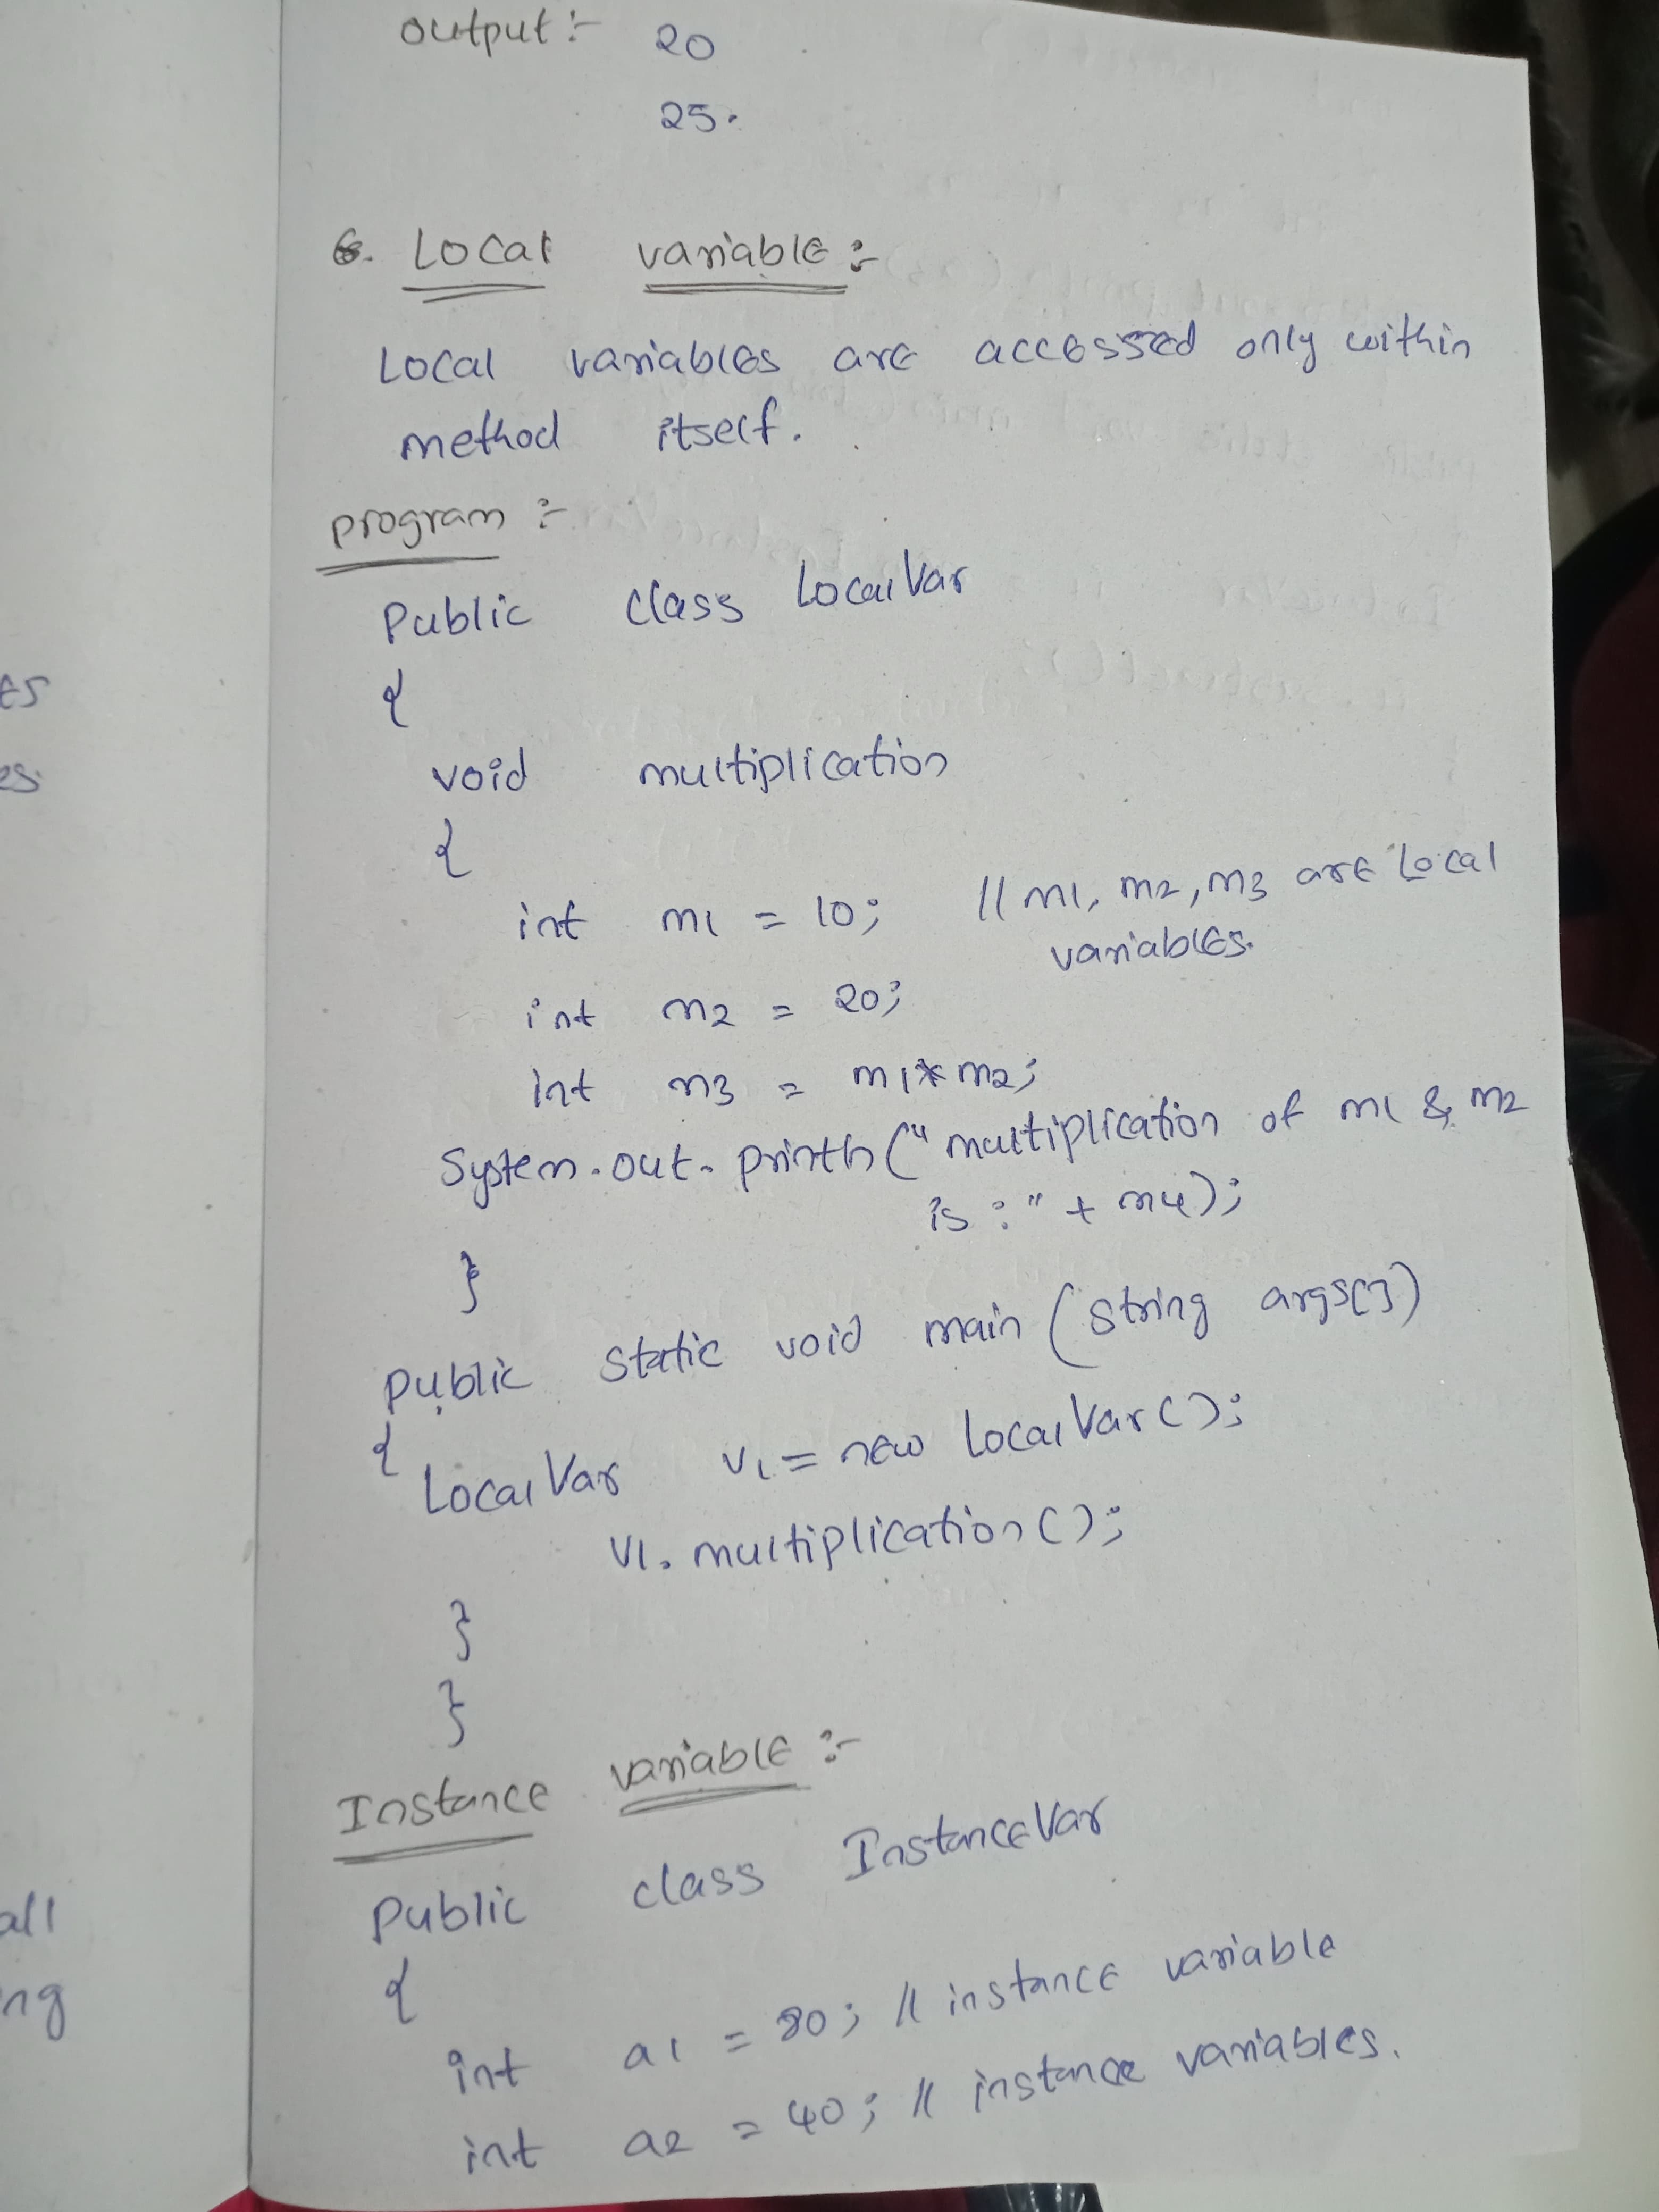 output :-    20
25.
6. Local variable :-
Local variables are accessed only within
method itself.
program :-
Public class LocalVar
{
void multiplication
{
int m1 = 10;    // m1, m2, m3 are Local
variables.
int m2 = 20;
int m3 = m1*m2;
System.out.println("multiplication of m1 & m2
is :" + m4);
}
public static void main (string args[])
{
LocalVar v1 = new LocalVar();
v1.multiplication();
}
}
Instance variable :-
Public class InstanceVar
{
int a1 = 80; // instance variable
int a2 = 40; // instance variables.
es
es.
all
ng